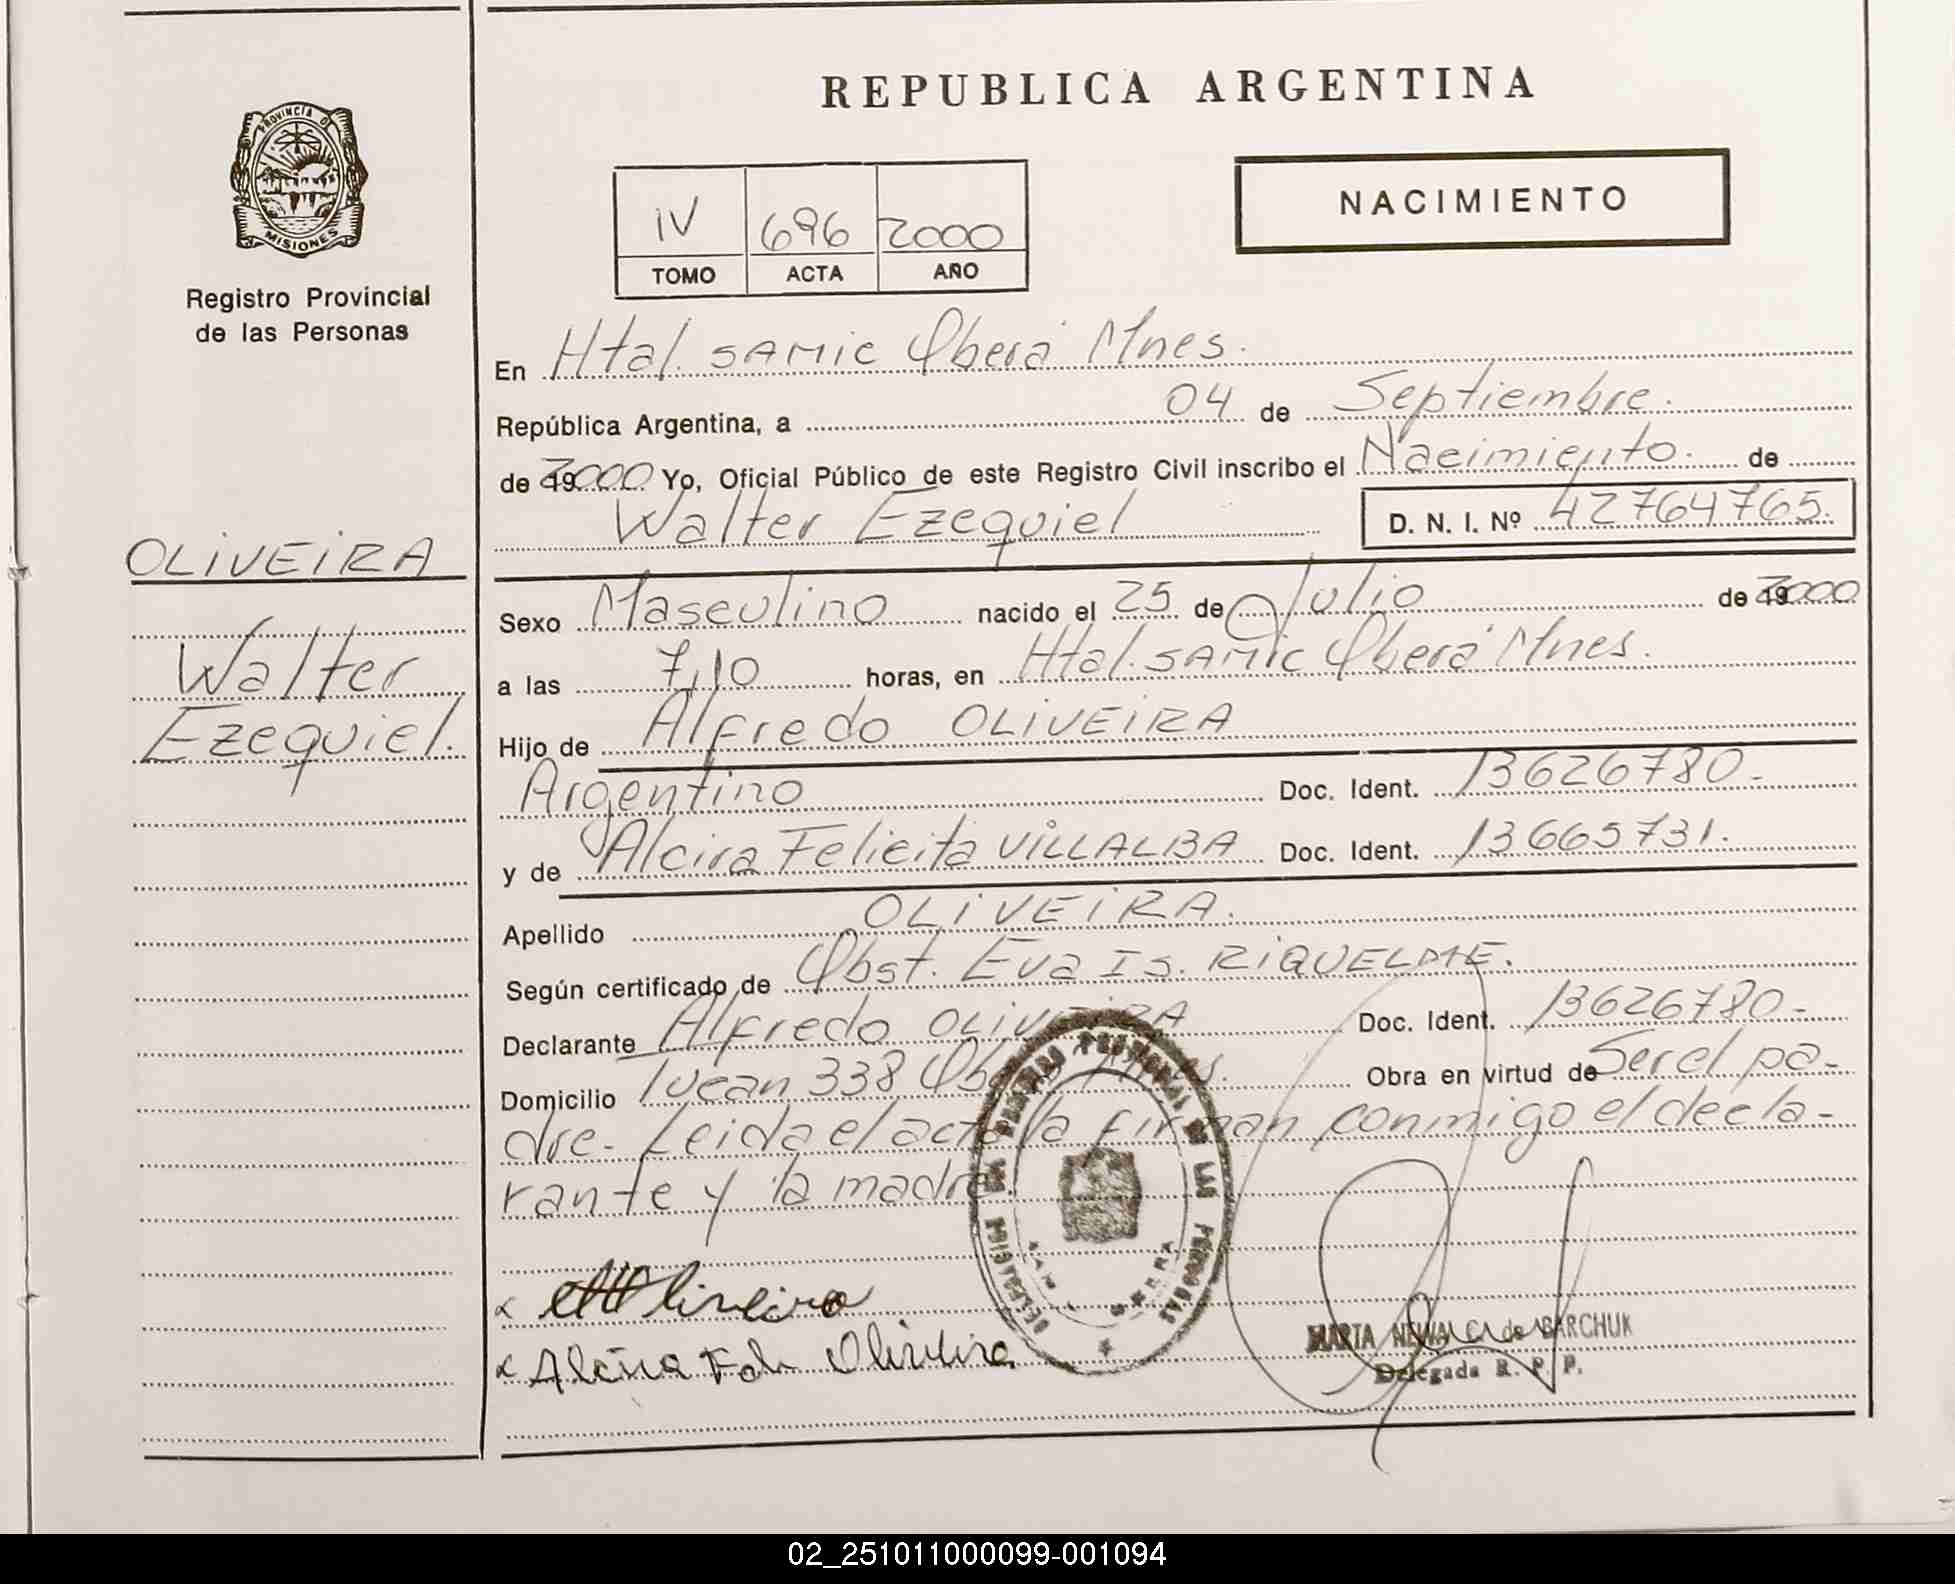 REPUBLICA ARGENTINA
PROVINCIA D
MISIONES
Registro Provincial
de las Personas
NACIMIENTO
IV 696 2000
TOMO ACTA AÑO
En Htal. SAMIC Oberá Mnes.
República Argentina, a 04 de Septiembre.
de 2000 Yo, Oficial Público de este Registro Civil inscribo el Nacimiento. de
Walter Ezequiel D. N. I. Nº 42764765.
OLIVEIRA
Walter
Ezequiel.
Sexo Masculino nacido el 25 de Julio de 2000
a las 7,10 horas, en Htal. SAMIC Oberá Mnes.
Hijo de Alfredo OLIVEIRA
Argentino Doc. Ident. 13626780-
y de Alcira Felicita VILLALBA Doc. Ident. 13665731.
Apellido OLIVEIRA.
Según certificado de Obst. Eva Is. RIQUELME.
Declarante Alfredo OLIVEIRA Doc. Ident. 13626780-
Domicilio 338 Oberá Mnes. Obra en virtud de Ser el pa-
dre- Leida el acta la firman conmigo el decla-
rante y la madre.
DELEGACION DEL REGISTRO PROVINCIAL DE LAS PERSONAS
Oliveira
Alcira Oliveira
MARTA de BARCHUK
Delegada R. P. P.
02_251011000099-001094